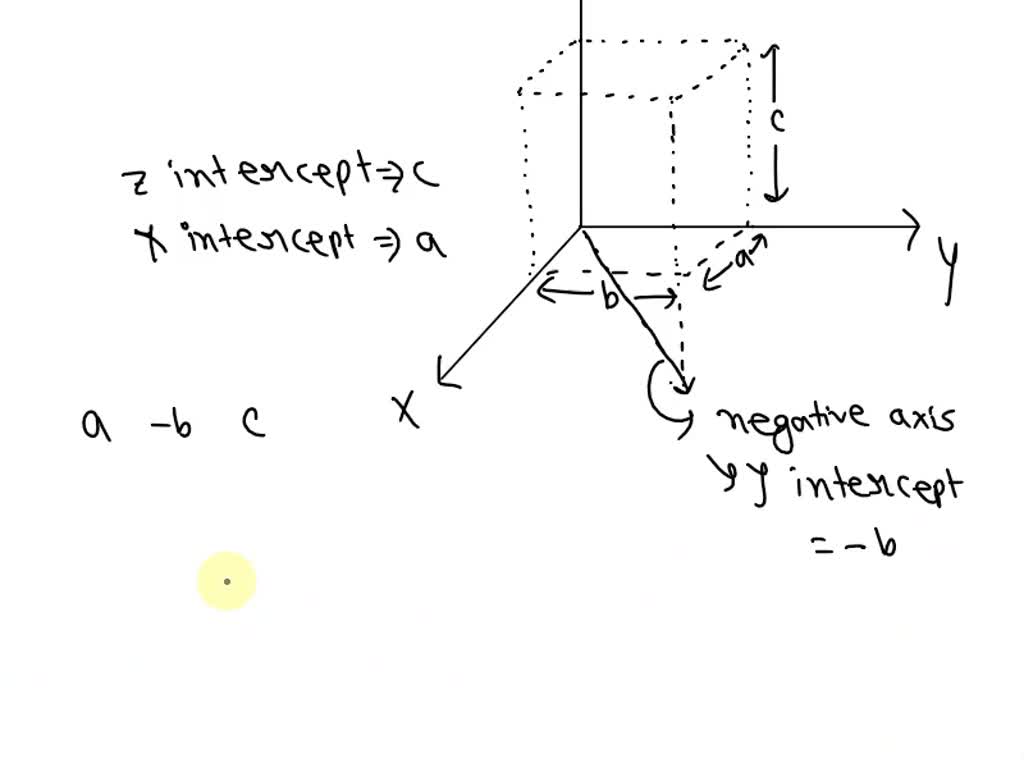 c
z intercept⇒c
x intercept⇒a
y
a
b
a -b c
x
negative axis
y y intercept
= -b